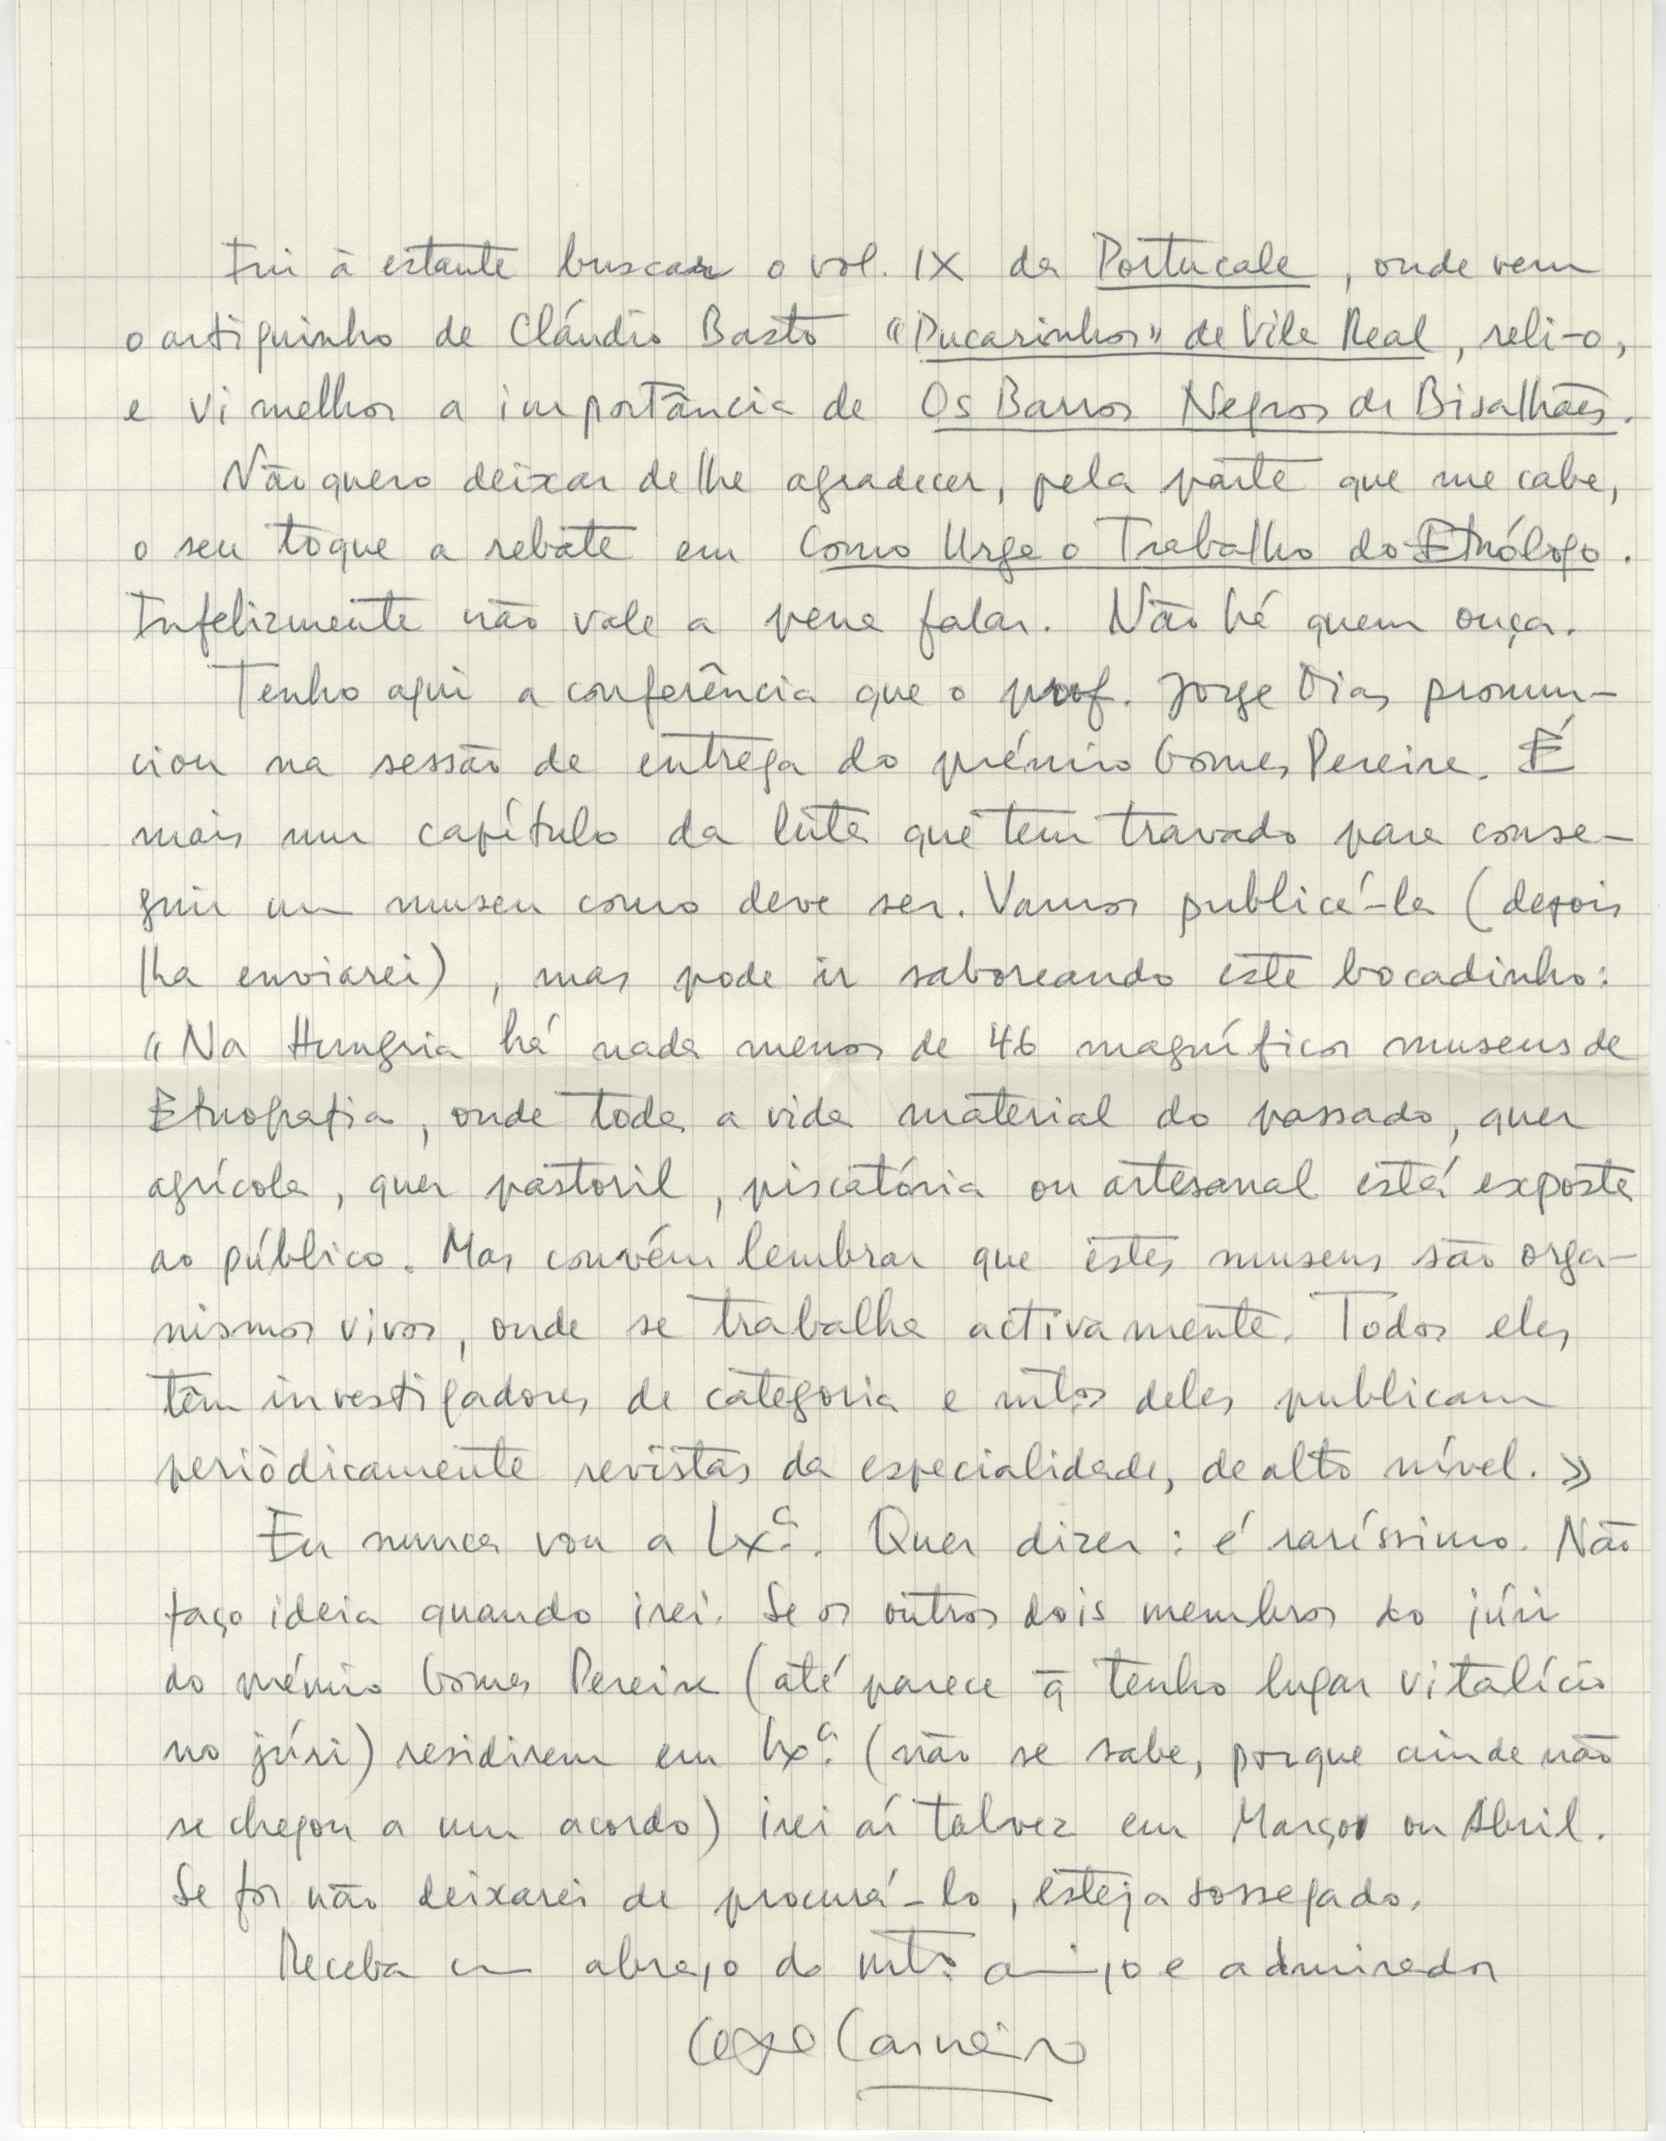 Fui à estante buscar o vol. IX da Portucale, onde vem
o artiguinho de Cláudio Basto "Pucarinhos" de Vila Real, reli-o,
e vi melhor a importância de Os Barros Negros de Bisalhães.
Não quero deixar de lhe agradecer, pela parte que me cabe,
o seu toque a rebate em Como Urge o Trabalho do Etnólogo.
Infelizmente não vale a pena falar. Não há quem ouça.
Tenho aqui a conferência que o prof. Jorge Dias pronun-
ciou na sessão de entrega do prémio Gomes Pereira. É
mais um capítulo da luta que tem travado para conse-
guir um museu como deve ser. Vamos publicá-la (depois
lha enviarei), mas pode ir saboreando este bocadinho:
"Na Hungria há nada menos de 46 magníficos museus de
Etnografia, onde toda a vida material do passado, quer
agrícola, quer pastoril, piscatória ou artesanal está exposta
ao público. Mas convém lembrar que estes museus são orga-
nismos vivos, onde se trabalha activamente. Todos eles
têm investigadores de categoria e mtos deles publicam
periòdicamente revistas da especialidade, de alto nível. »
Eu nunca vou a Lxª. Quer dizer: é raríssimo. Não
faço ideia quando irei. Se os outros dois membros do júri
do prémio Gomes Pereira (até parece q̄ tenho lugar vitalício
no júri) residirem em Lxª. (não se sabe, porque ainda não
se chegou a um acordo) irei aí talvez em Março ou Abril.
Se for não deixarei de procurá-lo, esteja sossegado.
Receba um abraço do mtº amigo e admirador
Carneiro